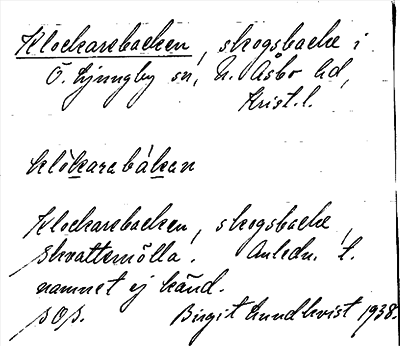 Klockarebacken, skogsbacke i
Ö. Ljungby sn, N. Åsbo hd,
Krist. l.
klòkarabákan
Klockarebacken, skogsbacke,
Skvattemölla. Anledn. t.
namnet ej känd.
Birgit Lundkvist 1938.